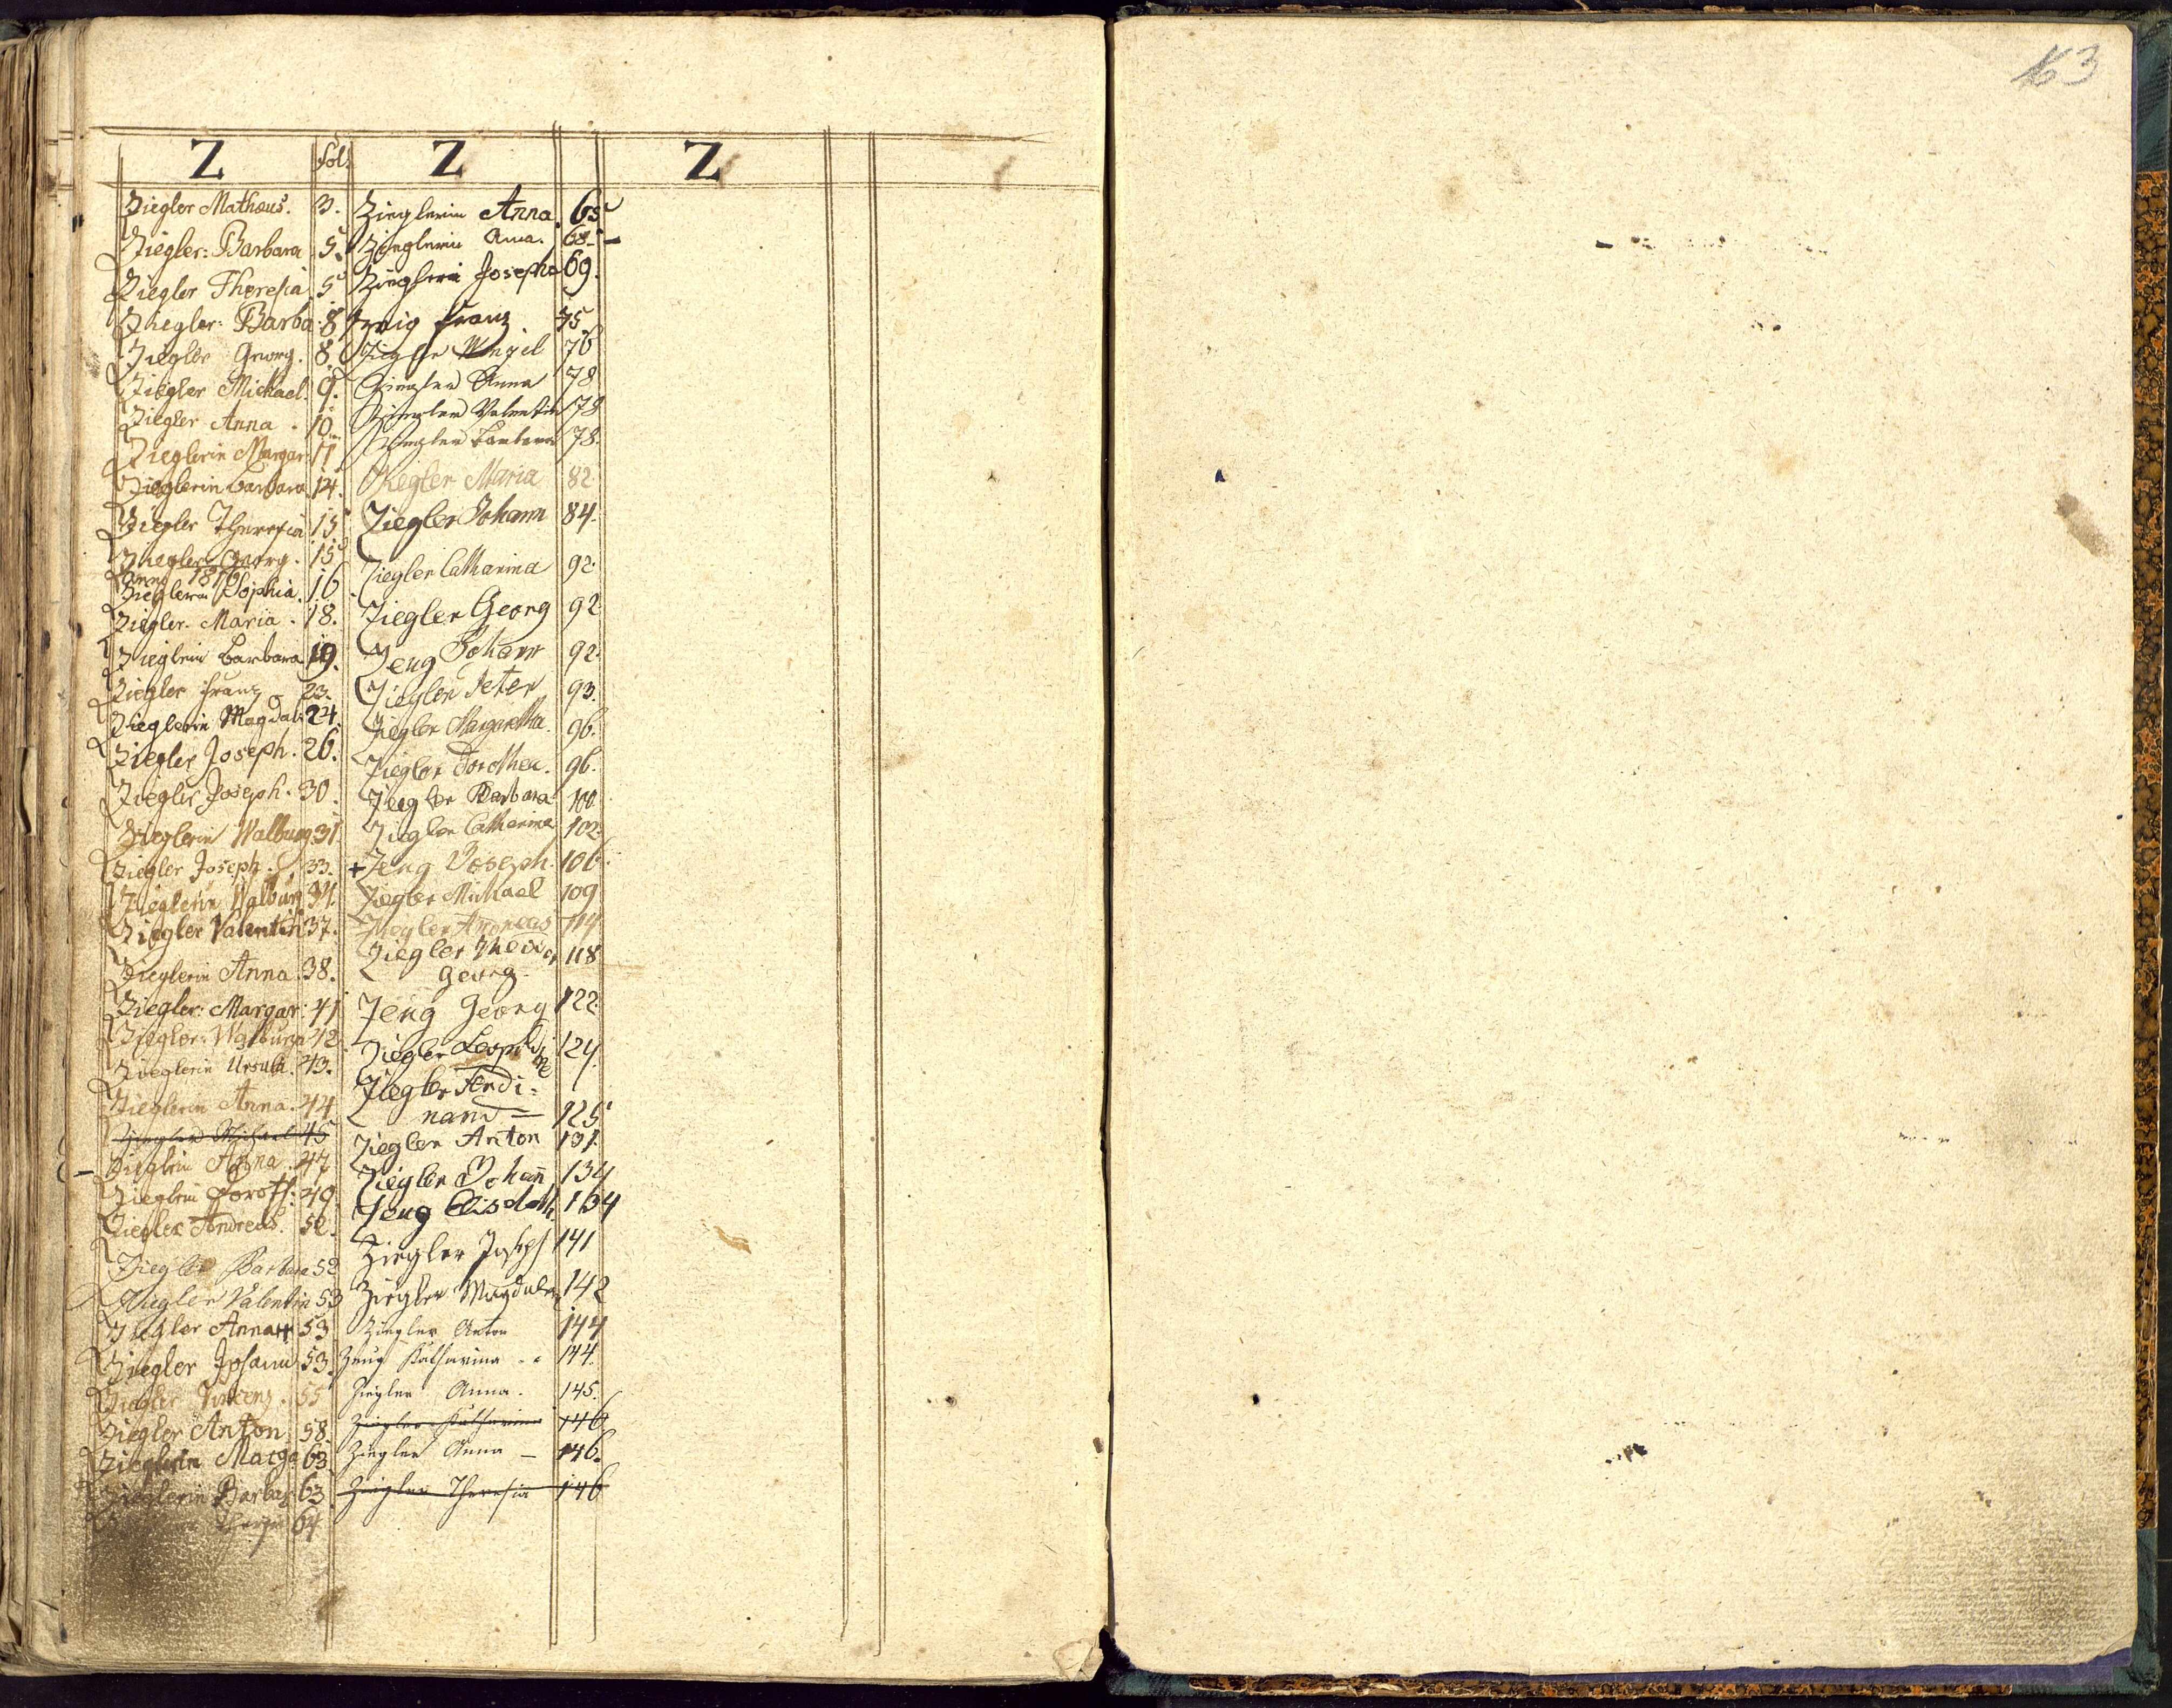 163
Z
fol:
Z
Z
Ziegler Mathæus. 3.
Ziegler: Barbara 5.
Ziegler Theresia 5
Ziegler: Barba: 8
Ziegler Georg. 8.
Ziegler Michael. 9.
Ziegler Anna. 10.
Zieglerin Margar: 11
Zieglerin barbara. 14.
Ziegler Theresia 15.
Ziegler Georg. 15
anno 1816
Zieglerin Sophia. 16
Ziegler. Maria. 18.
Zieglerin barbara 19.
Ziegler franz 23.
Zieglerin Magdal: 24.
Ziegler Joseph. 26.
Ziegler Joseph. 30.
Zieglerin Walburg 31
Ziegler Joseph. 33.
Zieglerin Walburg 34.
Ziegler Valentin 37.
Zieglerin Anna. 38.
Ziegler: Margar: 41
Ziegler: Walburga 42
Zieglerin Ursula. 43.
Zieglerin Anna. 44.
Ziegler Michael 45
Zieglerin Anna. 47
Zieglerin Doroth: 49.
Ziegler Andreas. 52.
Ziegler Barbara 52
Ziegler Valentin 53
Ziegler Anna 53
Ziegler Johann 53.
Ziegler Vincenz. 55
Ziegler Anton 58.
Zieglerin Marga 63
Zieglerin Barba 63
64
Zieglerin Anna. 65
Zieglerin Anna. 68.
Zieglerin Josepha 69.
franz 75
Ziegler Wenzel 76
Ziegler Anna 78
Ziegler Valentin 78
Ziegler barbara 78.
Ziegler Maria 82.
Ziegler Johann 84.
Ziegler Catharina 92.
Ziegler Georg 92
Zeng Johann 92.
Ziegler Peter 93.
Ziegler Margaretha. 96.
Ziegler Dorothea. 96.
Ziegler Barbara 100.
Ziegler Catharina 102.
+ Zeng Joseph. 106.
Ziegler Michael 109
Ziegler Andreas 114
Ziegler Theodor 118
Georg
Zeng Georg 122.
Ziegler Leopoldine 124.
Ziegler Ferdi=
nand 125
Ziegler Anton 131.
Ziegler Johann 134
Zeng Elisabeth 134
Ziegler Joseph 141
Ziegler Magdalen 142
Ziegler Anton 144
Zeng Katharina 144.
Ziegler Anna. 145.
Ziegler Katharina 146
Ziegler Anna — 146.
Ziegler Theresia 146